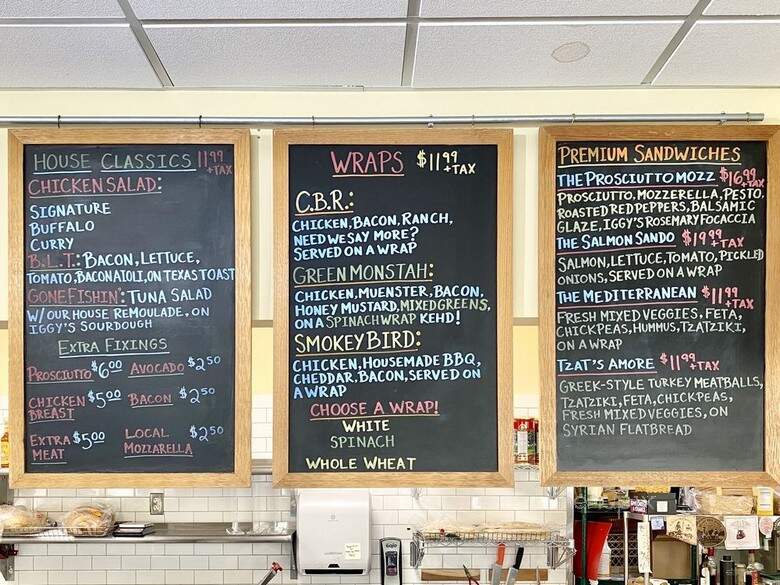 HOUSE CLASSICS 11.99 +TAX
CHICKEN SALAD:
SIGNATURE
BUFFALO
CURRY
B.L.T.: BACON, LETTUCE,
TOMATO, BACON AIOLI, ON TEXAS TOAST
GONE FISHIN': TUNA SALAD
W/ OUR HOUSE REMOULADE, ON
IGGY'S SOURDOUGH
EXTRA FIXINGS
PROSCIUTTO $6.00 AVOCADO $2.50
CHICKEN BREAST $5.00 BACON $2.50
EXTRA MEAT $5.00 LOCAL MOZZARELLA $2.50
WRAPS $11.99 +TAX
C.B.R.:
CHICKEN, BACON, RANCH,
NEED WE SAY MORE?
SERVED ON A WRAP
GREEN MONSTAH:
CHICKEN, MUENSTER, BACON,
HONEY MUSTARD, MIXED GREENS,
ON A SPINACH WRAP KEHD!
SMOKEY BIRD:
CHICKEN, HOUSEMADE BBQ,
CHEDDAR, BACON, SERVED ON
A WRAP
CHOOSE A WRAP!
WHITE
SPINACH
WHOLE WHEAT
PREMIUM SANDWICHES
THE PROSCIUTTO MOZZ $16.99 +TAX
PROSCIUTTO, MOZZERELLA, PESTO,
ROASTED RED PEPPERS, BALSAMIC
GLAZE, IGGY'S ROSEMARY FOCACCIA
THE SALMON SANDO $19.99 +TAX
SALMON, LETTUCE, TOMATO, PICKLED
ONIONS, SERVED ON A WRAP
THE MEDITERRANEAN $11.99 +TAX
FRESH MIXED VEGGIES, FETA,
CHICKPEAS, HUMMUS, TZATZIKI,
ON A WRAP
TZAT'S AMORE $11.99 +TAX
GREEK-STYLE TURKEY MEATBALLS,
TZATZIKI, FETA, CHICKPEAS,
FRESH MIXED VEGGIES, ON
SYRIAN FLATBREAD